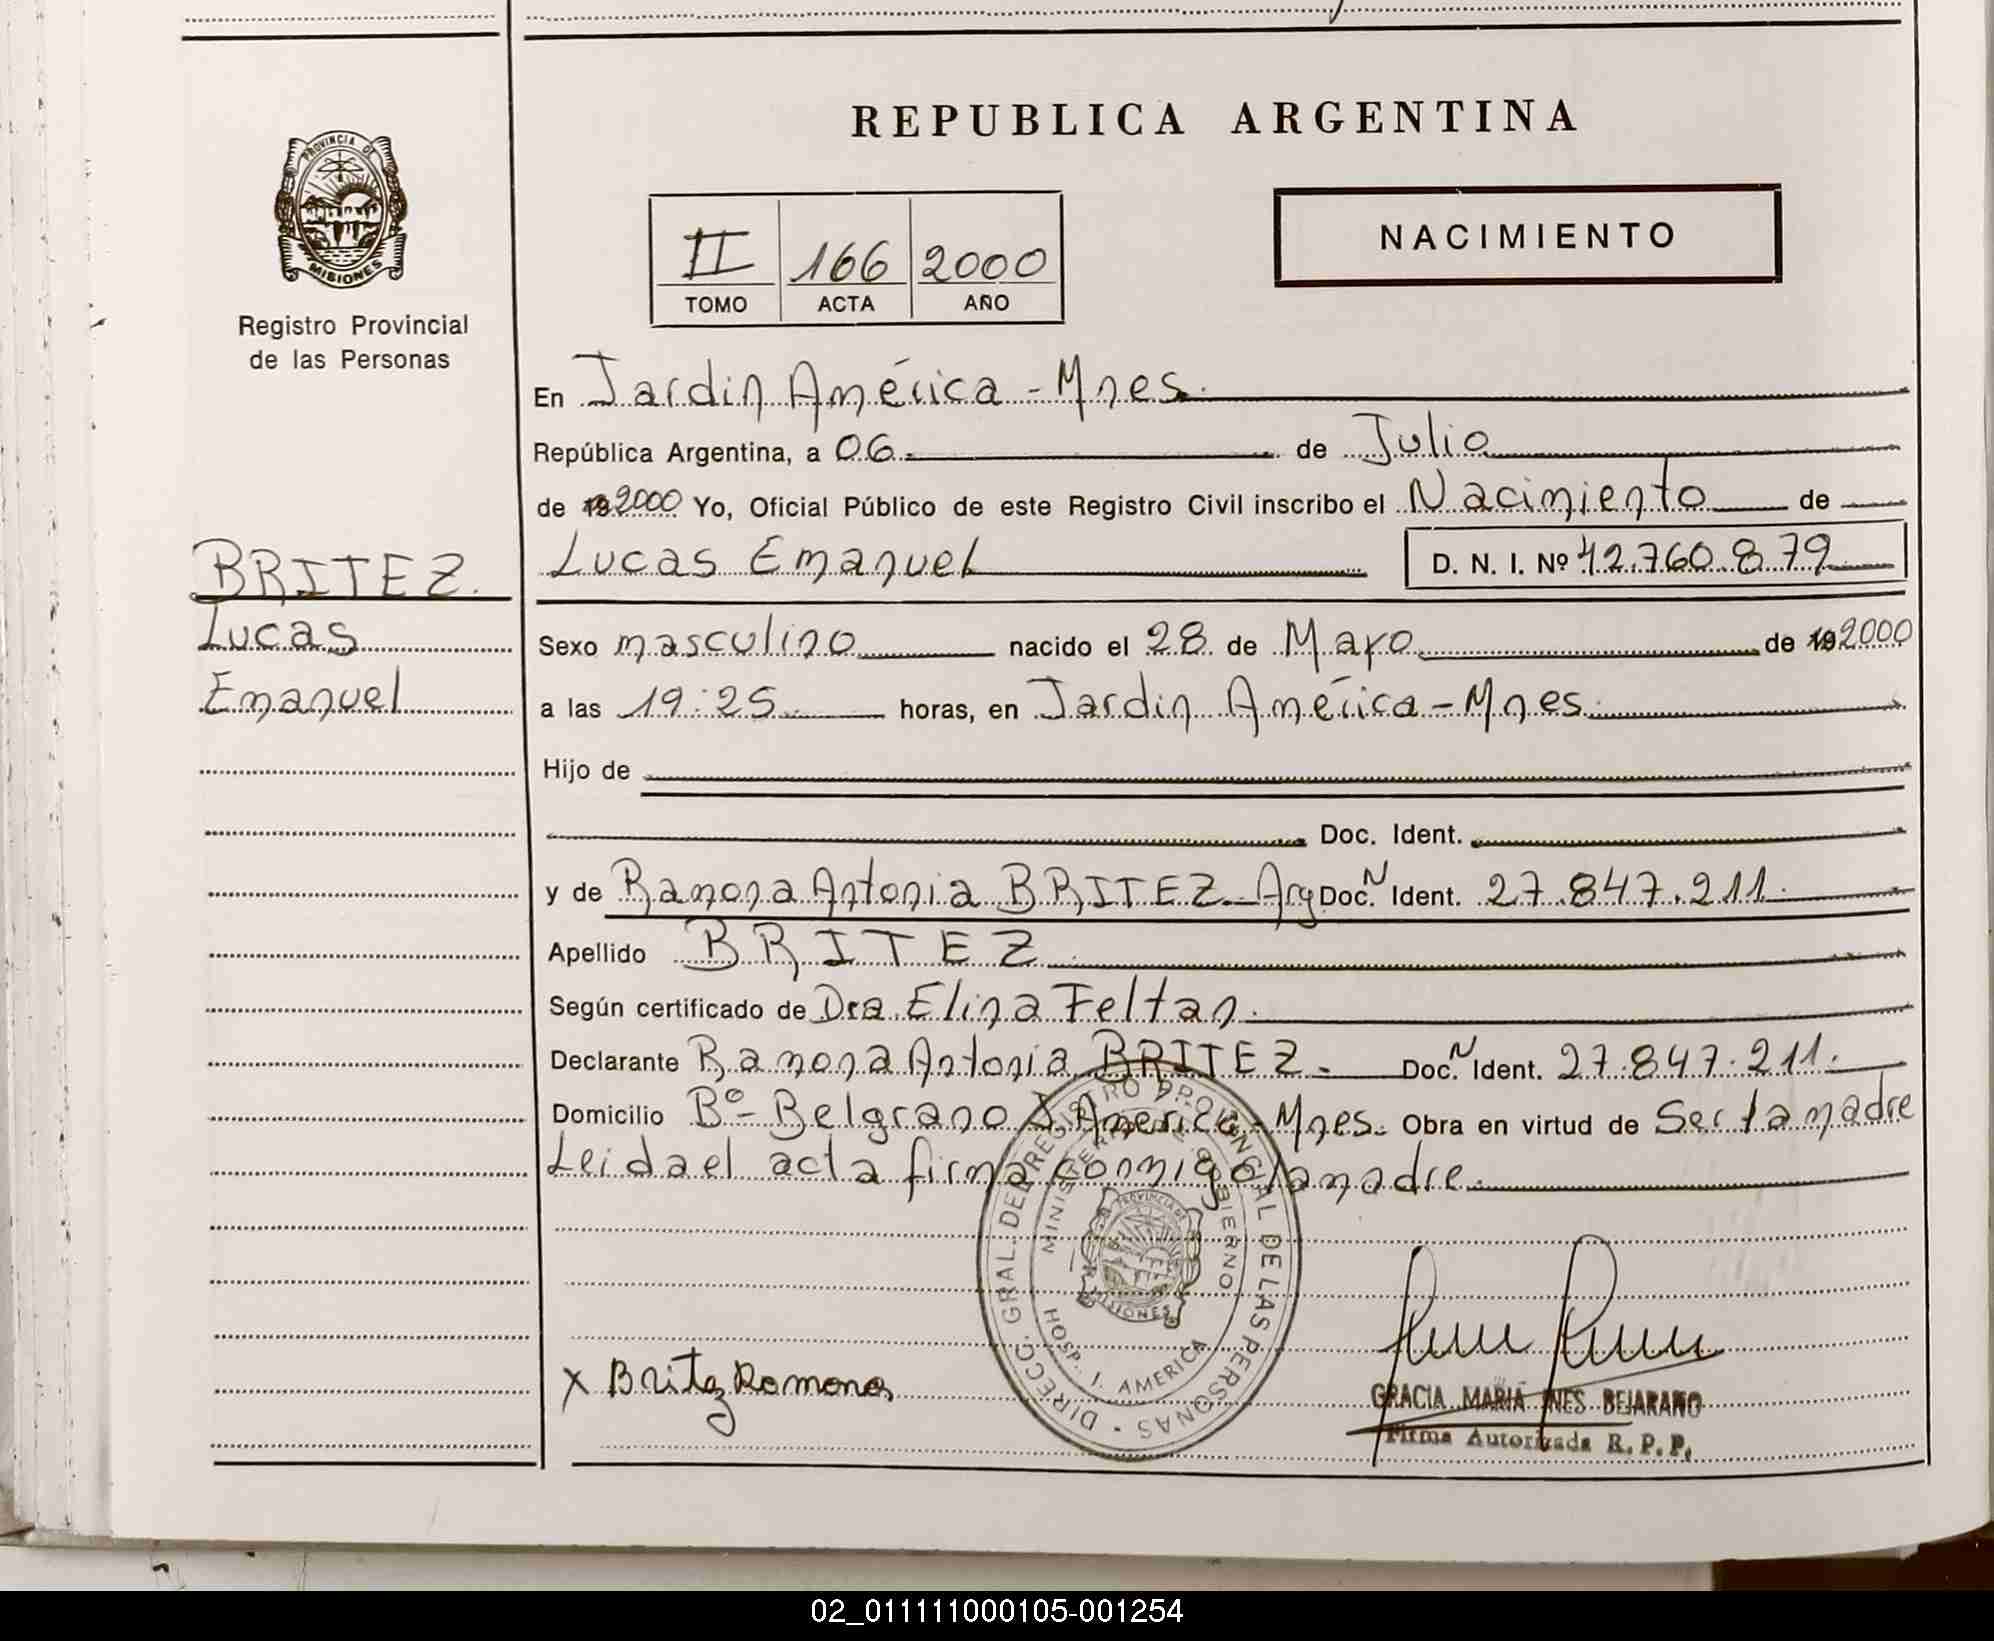 REPUBLICA ARGENTINA
PROVINCIA DE
MISIONES
Registro Provincial
de las Personas
II 166 2000
TOMO ACTA AÑO
NACIMIENTO
En Jardin América - Mnes.
República Argentina, a 06. de Julio
de 19 2000 Yo, Oficial Público de este Registro Civil inscribo el Nacimiento de
Lucas Emanuel D. N. I. Nº 42.760.879
BRITEZ.
Lucas
Emanuel
Sexo masculino nacido el 28 de Mayo de 19 2000
a las 19:25 horas, en Jardin América - Mnes.
Hijo de
Doc. Ident.
y de Ramona Antonia BRITEZ - Arg Doc. N Ident. 27.847.211.
Apellido BRITEZ
Según certificado de Dra. Elina Feltan.
Declarante Ramona Antonia BRITEZ. Doc. N Ident. 27.847.211.
Domicilio Bº - Belgrano J. America - Mnes. Obra en virtud de Ser la madre
Leida el acta firma conmigo la madre.
DIRECC. GRAL. DEL REGISTRO PROVINCIAL DE LAS PERSONAS
MINISTERIO DE GOBIERNO
PROVINCIA DE
MISIONES
HOSP. J. AMERICA
X Britez Ramona
GRACIA MARIA INES BEJARANO
Firma Autorizada R. P. P.
02_011111000105-001254